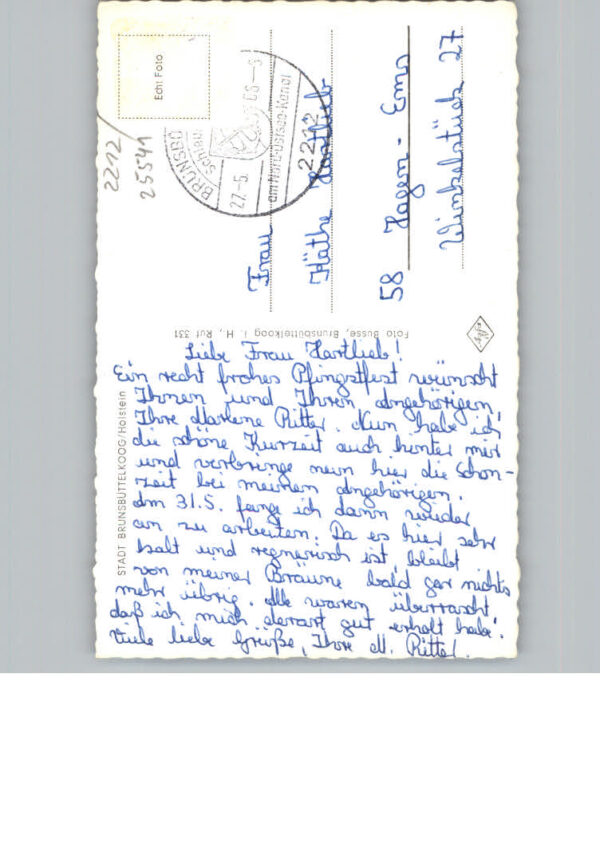 Liebe Frau Hartlieb!
Ein recht frohes Pfingstfest wünscht
Ihnen und Ihren Angehörigen,
Ihre Marlene Ritter. Nun habe ich
die schöne Kurzeit auch hinter mir
und verbringe nun hier die Schon-
zeit bei meinen Angehörigen.
Am 31.5. fange ich dann wieder
an zu arbeiten. Da es hier sehr
kalt und regnerisch ist, bleibt
von meiner Bräune bald gar nichts
mehr übrig. Alle waren überrascht,
daß ich mich derart gut erholt habe.
Viele liebe Grüße, Ihre M. Ritter.
Frau
Käthe Hartlieb
58 Hagen-Ems
Winkelstück 27
Echt Foto
BRUNSBÜ
27.-5.
am Nord-Ostsee-Kanal
2212
2212/
25541
STADT BRUNSBÜTTELKOOG/Holstein
Foto Busse, Brunsbüttelkoog i. H., Ruf 331